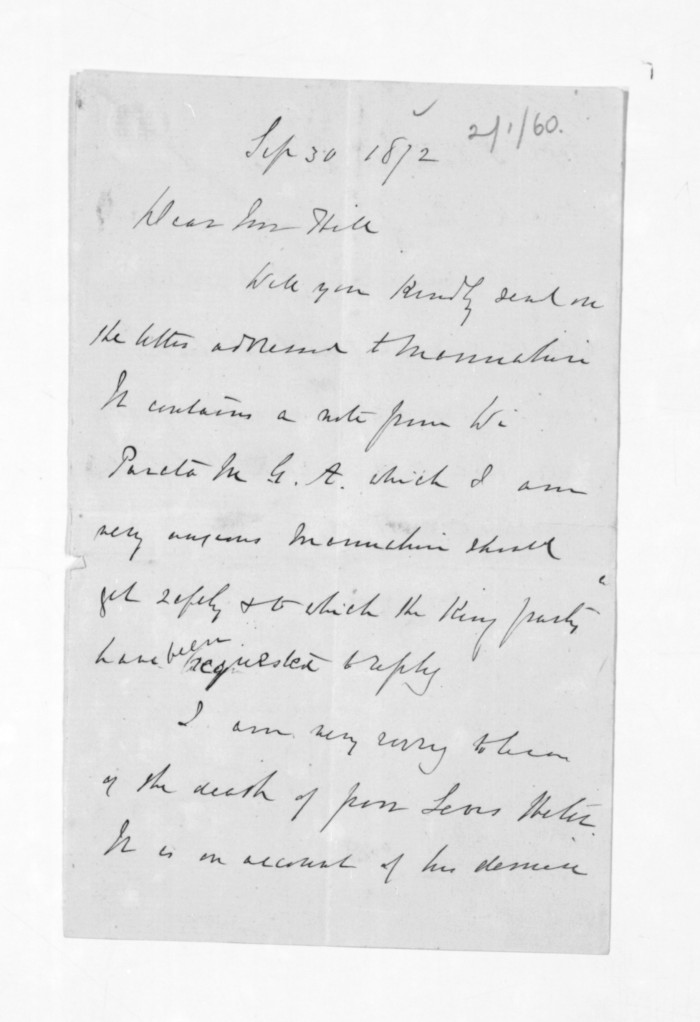 2/1/60.
Sep 30 1872
Dear Mr Hill
Will you kindly send on
the letter addressed to Manuhiri
It contains a note from Wi
Parata M G. A. which I am
very anxious Manuhiri should
get safely & to which the King party
have been requested to reply
I am very sorry to hear
of the death of poor
It is on account of his demise